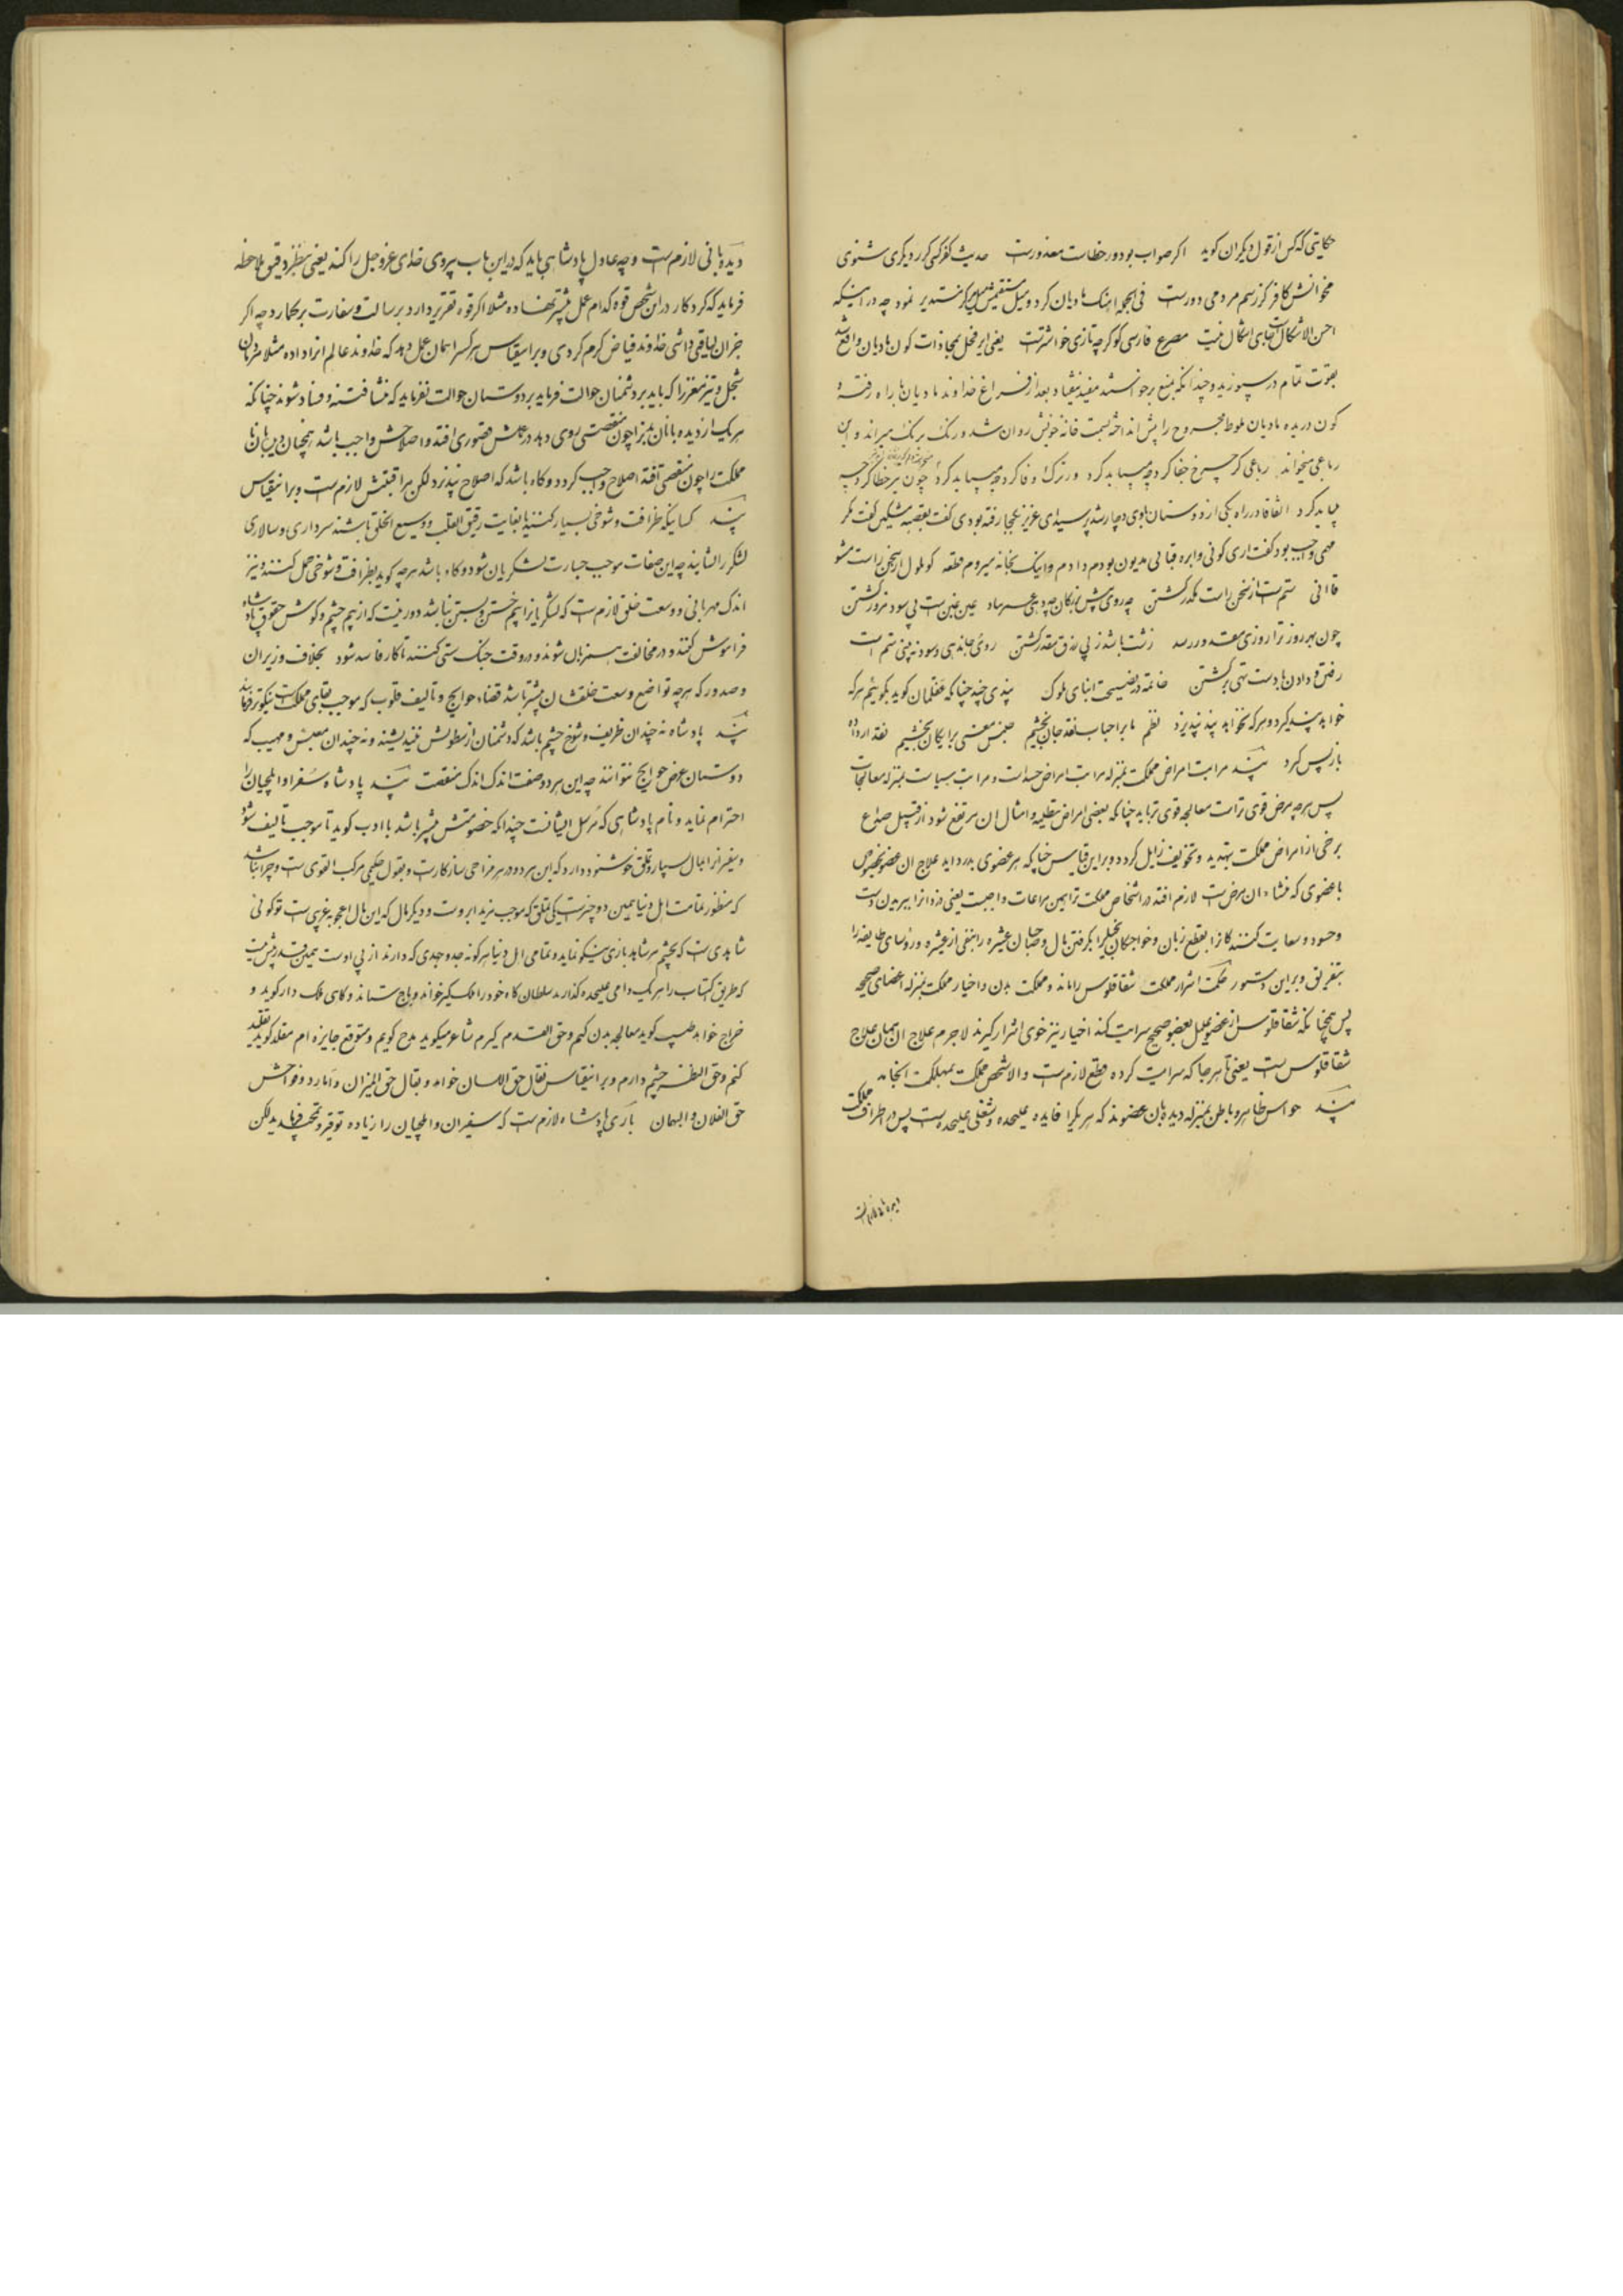 حکایتی که کس از قول دیگران کوید اکر صواب بود ور خطاست معذورست حدیث کفر کسی کر ز دیکری شنوی
مخوانش کافر کز رسم مردمی دورست فی الجمله اهنک مادیان کرد و میل مستقیمش را میل مستدیر نمود چه در اینکه
احسن الاشکال است جای اشکال نیست مصرع فارسی کو کرچه تازی خوشترست یعنی ایر فحل بمحاذات کون مادیان واقع شد
بقوت تمام در سپوزید و چندانکه بمنع برجواستند مفید نیفتاد بعد از فراغ خداوند مادیان با راه رفته و
کون دریده مادیان ملوط مجروح را پیش انداخته بسمت خانه خویش روان شد و رنک برنک میراند و این
رباعی میخواند رباعی کر چرخ جفا کرد چه میباید کرد ور ترک وفا کرد چه میباید کرد چون تیر خطا کرد چه
میباید کرد اتفاقا در راه یکی از دوستان بوی دچار شد پرسید ای عزیز کجا رفته بودی کفت بقصبه مشکین کفت مکر
مهمی واجب بود کفت اری کونی و ابره قبائی مدیون بودم دادم و اینک بخانه میروم قطعه کو ملول از سخن راست مشو
قاآنی ستم است از سخن راست مکدر کشتن چه روی پیش بزرکان چو دهی عرض هنر عین غبن است بی سود مزور کشتن
چون بهر روز ترا روزی مقدر رسد زشت باشد ز پی رزق مقدر کشتن روی مالیدهی و سود نه بینی ستم است
رفتن و دادن و با دست تهی برکشتن خاتمه در نصیحت ابنای ملوک پندی چند چنانکه عقلمان کوید بکوئیم هر که
خواهد پند کیرد و هر که نخواهد پند نپذیرد نظم ما بر احباب نقد جان بخشیم جنس معنی برایکان بخشیم نقد ار داده
باز پس کیرد پند مراتب امراض مملکت بمنزله مراتب امراض جسد است و مراتب سیاست بمنزله معالجات
پس هر چه مرض قوی تر است معالجه قوی تر باید چنانکه بعضی امراض بتقلیه و امثال ان مرتفع شود از قبیل صداع
برخی از امراض مملکت بتهدید و تخویف زایل کردد و بر این قیاس چنانکه هر عضوی بدرد اید علاج ان عضو بخصوص
یا عضوی که منشاء ان مرض است لازم افتد در اشخاص مملکت نیز همین مراعات واجبست یعنی دزد را ببریدن دست
و حسود و سعایت کنندکان را بقطع زبان و خواجکان بخیل را بکرفتن مال و صاحبان عشیره را بنفی از عشیره و رؤسای طایفه را
بتفریق و بر این دستور حکمت اشرار مملکت شقاقلوس را ماند و مملکت بدن و اخیار مملکت بمنزله اعضای صحیحه
پس همچنانکه شقاقلوس از عضو علیل بعضو صحیح سرایت کند اخیار نیز خوی اشرار کیرند لاجرم علاج ان همان علاج
شقاقلوس است یعنی تا هر جا که سرایت کرده قطع لازم است والا شخص مملکت بمهلکت انجامد
پند حواس ظاهر و باطن بمنزله دیده بان عضوند که هر یک را فایده علیحده و شغلی علیحده است پس در اطراف مملکت
دیده بانی لازم است
دیده بانی لازم است و چه عادل پادشاهی باید که در این باب پیروی خدای عز و جل را کند یعنی بنظر دقیق ملاحظه
فرماید که کردکار در این شخص قوه کدام عمل بیشتر نهاده مثلا اکر قوه تقریر دارد بر سالت و سفارت برکمارد چه اکر
جز ان لیاقتی داشتی خداوند فیاض کرم کردی و بر اینقیاس هر کس را همان عمل دهد که خداوند عالم انرا داده مثلا مردمان
شجیل و تیز مغز را که باید بر دشمنان حوالت فرماید بر دوستان حوالت نفرماید که منشا فتنه و فساد شوند چنانکه
هر یک از دیده بانان بدن را چون منقصتی روی دهد در عملش قصوری افتد و اصلاحش واجب باشد همچنان دیده بانان
مملکت را چون منقصتی افتد اصلاح واجب کردد و کاه باشد که اصلاح نپذیرد لکن مراقبتش لازم است و بر اینقیاس
پند کسانیکه ظرافت و شوخی بسیار کنند یا بغایت رقیق القلب و وسیع الخلق باشند سرداری و سالاری
لشکر را نشایند چه این صفات موجب جسارت لشکریان شود و کاه باشد هر چه کوید بظرافت و شوخی حمل کنند و نیز
اندک مهربانی و وسعت خلق لازم است که لشکریان را بیم خستن و بستن نباشد دور نیست که از بیم چشم و کوش حقوق پادشاه
فراموش کنند و در مخالفت همزبان شوند و در وقت جنک سستی کنند تا کار فاسد شود بخلاف وزیران
و صدور که هر چه تواضع و وسعت خلقشان بیشتر باشد قضاء حوایج و تالیف قلوب که موجب بقای مملکت است نیکوتر توانند
پند پادشاه نه چندان ظریف و شوخ چشم باشد که دشمنان از سطوتش نیندیشند و نه چندان معبس و مهیب که
دوستان عرض حوایج نتوانند چه این هر دو صفت اندک اندک منقصت پند پادشاه سفرا و ایلچیان را
احترام نماید و نام پادشاهی که مرسل ایشانست چندانکه خصومتش بیشتر باشد با ادب کوید تا موجب تالیف شود
و سفیر را بمال بسیار و تملق خوشنود دارد که این هر دو در هر مزاجی سازکار است و بقول حکیمی مرکب القوی است و چرا نباشد
که منظور تمامت اهل دنیا همین دو چیز است یکی تملق که موجب مزید ابروست و دیکر مال که این مال اعجوبه غریبی است تو کوئی
شاهدی است که بچشم هر شاهد بازی نیکو نماید و تمامی اهل دنیا هر کونه جد و جهدی که دارند از پی اوست همین قدر بیش نیست
که طریق اکتساب را هر یک دامی علیحده کذارند سلطان کاه خود را ملک کیر خواند و باج ستاند و کاهی ملک دار کوید و
خراج خواهد طبیب کوید معالجه بدن کنم و حق القدم کیرم شاعر میکوید مدح کویم و متوقع جایزه ام مقلد کوید تقلید
کنم و حق الظرفه چشم دارم و بر اینقیاس نقال حق اللسان خواهد و بقال حق المیزان و امارد و فواحش
حق الفلان و البهمان باری پادشاه لازم است که سفیران و ایلچیان را زیاده توقیر و تمجید فرماید لکن